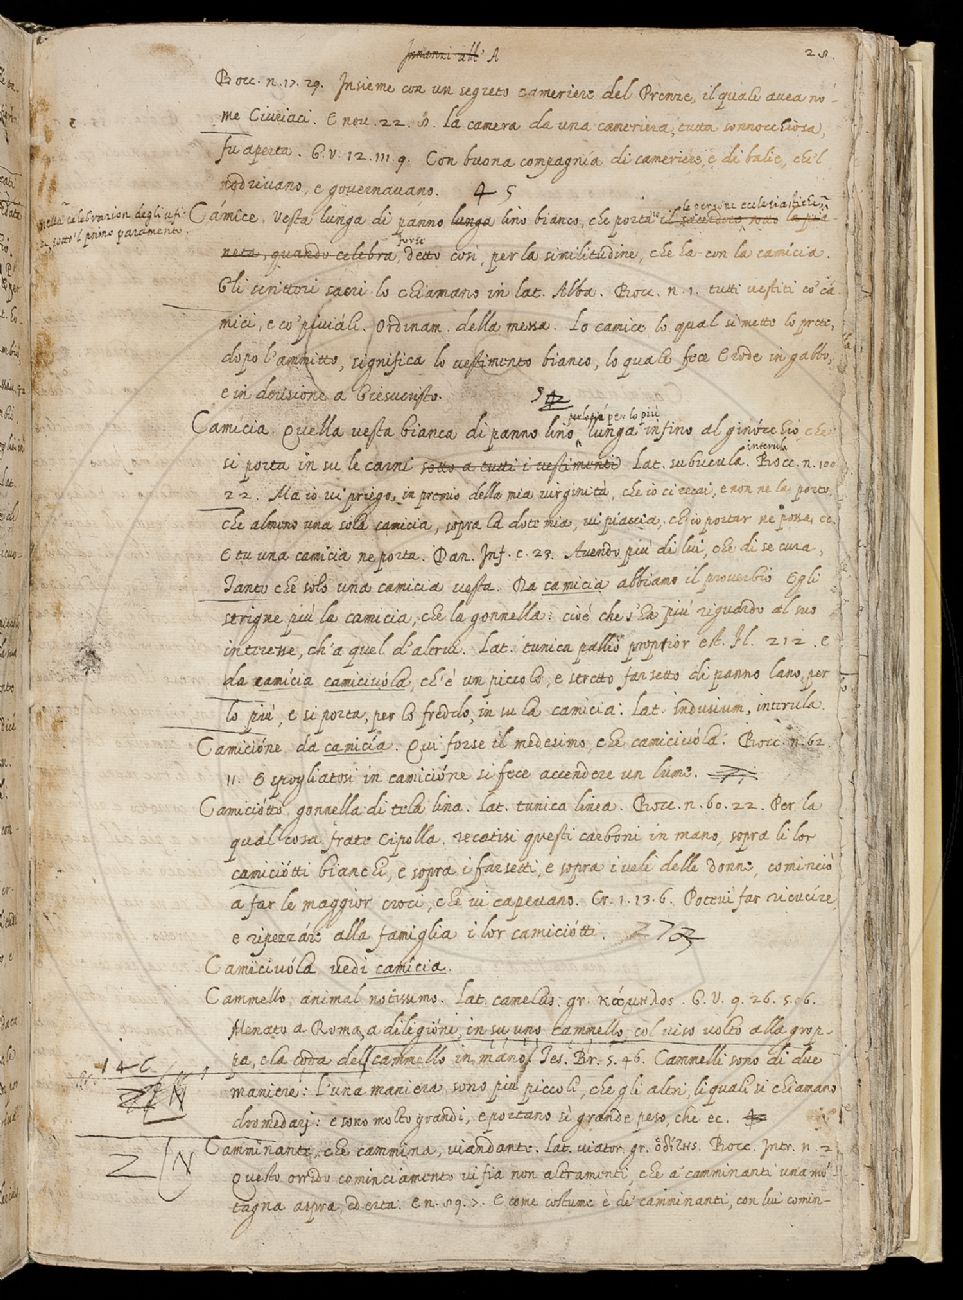 Innanzi all' A
28.
Bocc. n. 17. 29. Insieme con un segreto cameriere del Prenze, il quale avea no-
me Ciuriaci. E nov. 22. 8. La camera da una cameriera, tutta sonnocchiosa,
fu aperta. G. V. 12. 111. 9. Con buona compagnía di cameriere, e di balie, che 'l
nodrivano, e governavano. 4 5
nella celebrazion degli ufi-
zi, sotto 'l primo paramento.
le persone ecclesiastiche
Cámice. vesta lunga di panno lunga lino bianco, che porta il sacerdote sotto la pia-
forse
neta, quando celebra, detto così, per la similitudine, che ha con la camícia.
Gli scrittori sacri lo chiamano in lat. Alba. Bocc. n. 1. tutti vestiti co' cá
mici, e co' piviáli. Ordinam. della messa. Lo camice lo qual si mette lo prete,
dopo l'ammitto, significa lo vestimento bianco, lo quale fece Erode in gabbo,
e in derisione a Giesucristo. 5
per lo più
Camícia. Quella vesta bianca di panno lino lunga infino al ginócchio che
interula
si porta in su le carni sotto a tutti i vestimenti Lat. subucula. Bocc. n. 100
22. Ma io vi priego, in premio della mia virginità, che io ci recai, e non ne la porto,
che almeno una sola camicia, sopra la dote mia, vi piaccia, che io portar ne possa, ec.
E tu una camicia ne porta. Dan. Inf. c. 23. Avendo più di lui, che di se cura,
Tanto che solo una camicia vesta. Da camicia abbiamo il proverbio Egli
strigne più la camicia, che la gonnella: cioè che s'ha più riguardo al suo
interesse, ch' a quel d'altrui. Lat. tunica pallio proprior est. Fl. 212. e
da camícia camiciuóla, ch'è un piccolo, e stretto farsetto di panno lano, per
lo più, e si porta, per lo freddo, in su la camicia. Lat. indusium, interula.
Camicióne da camicía. Qui forse il medesimo, che camiciuola. Bocc. n. 62.
11. E spogliatosi in camicióne si fece accendere un lume.
Camiciótto. gonnella di tela lina. Lat. tunica linea. Bocc. n. 60. 22. Per la
qual cosa frate Cipolla. recatisi questi carboni in mano, sopra li lor
camiciótti bianchi, e sopra i farsetti, e sopra i veli delle donne, cominciò
a far le maggior croci, che vi capevano. Cr. 1. 13. 6. Potevi far ricucíre,
e ripezzáre alla famiglia i lor camiciótti. 272
Camiciuóla vedi camicia.
Cammello, animal notissimo. Lat. camelus, gr. κάμηλος. G. V. 9. 26. 506.
Menato a Roma a diligióni, in su uno cammello col viso volto alla grop-
pa, e la coda del cammello in mano. Tes. Br. 5. 46. Cammelli sono di due
146
maniere: l'una maniera sono più piccoli, che gli altri, li quali si chiamano
dromedarj: e sono molto grandi, e portano sì grande peso, che ec.
Camminante, che cammina, viandante. Lat. viator. gr. ὁδίτης. Bocc. Intr. n. 2
Questo orrido cominciamento vi fia non altramenti, che a' camminanti una mō-
tagna aspra, ed erta. E n. 89. 7. E come costume è de' camminanti, con lui comin-